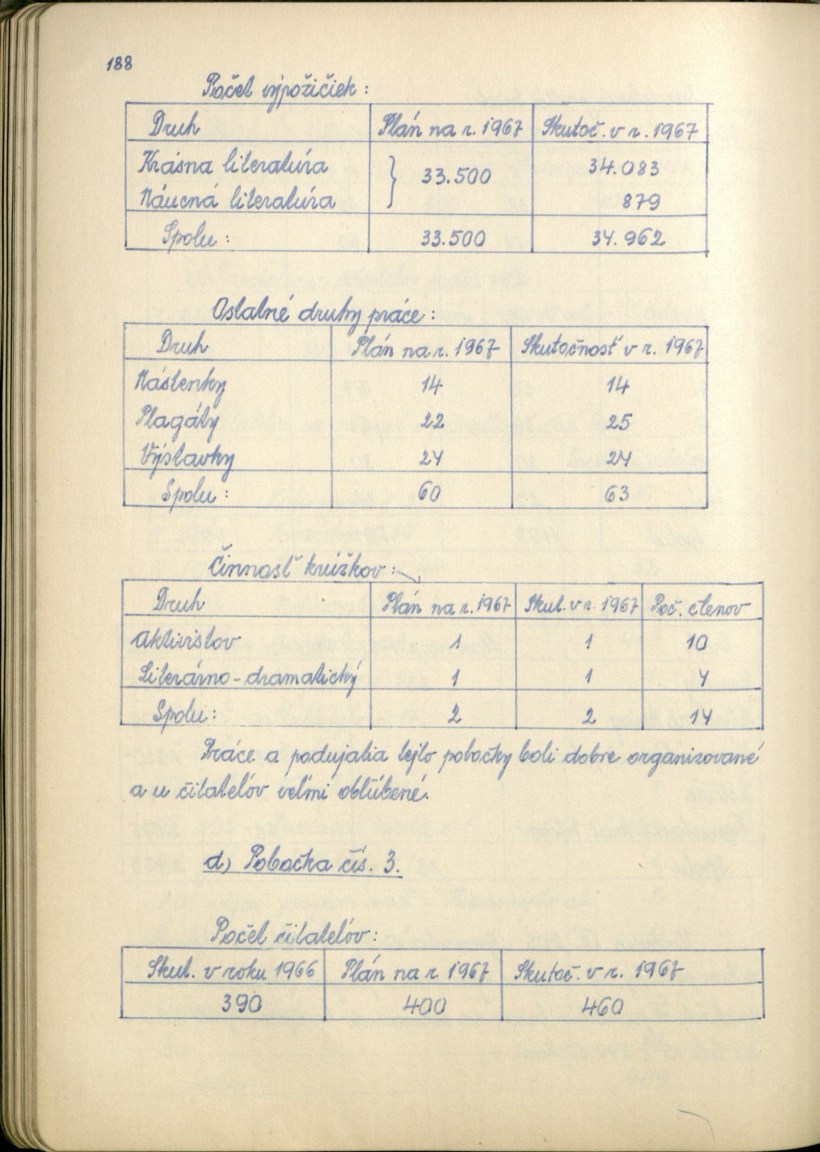 188
Počet výpožičiek :
Druh Plán na r. 1967 Skutoč. v r. 1967
Krásna literatúra } 33.500 34.083
Náučná literatúra 879
Spolu : 33.500 34.962
Ostatné druhy práce :
Druh Plán na r. 1967 Skutočnosť v r. 1967
Nástenky 14 14
Plagáty 22 25
Výstavky 24 24
Spolu : 60 63
Činnosť krúžkov :
Druh Plán na r. 1967 Skut. v r. 1967 Poč. členov
Aktivistov 1 1 10
Literárno-dramatický 1 1 4
Spolu : 2 2 14
Práce a podujatia tejto pobočky boli dobre organizované
a u čitateľov veľmi obľúbené.
d) Pobočka čís. 3.
Počet čitateľov :
Skut. v roku 1966 Plán na r. 1967 Skutoč. v r. 1967
390 400 460